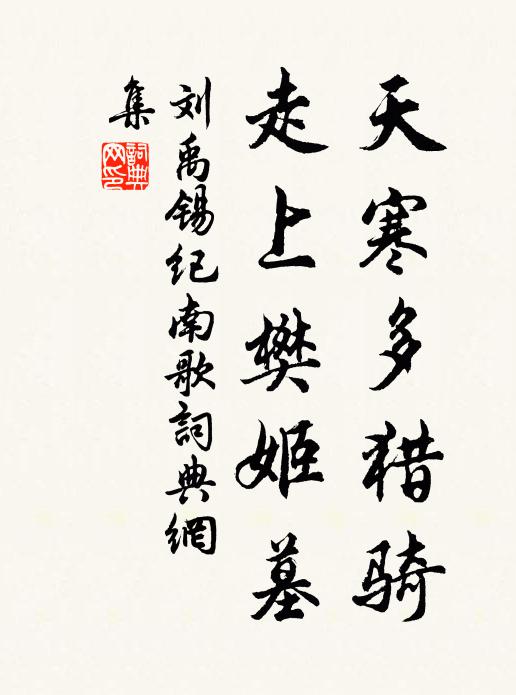 天寒多猎骑
走上樊姬墓
刘禹锡纪南歌詞典網
集
詞典
网印